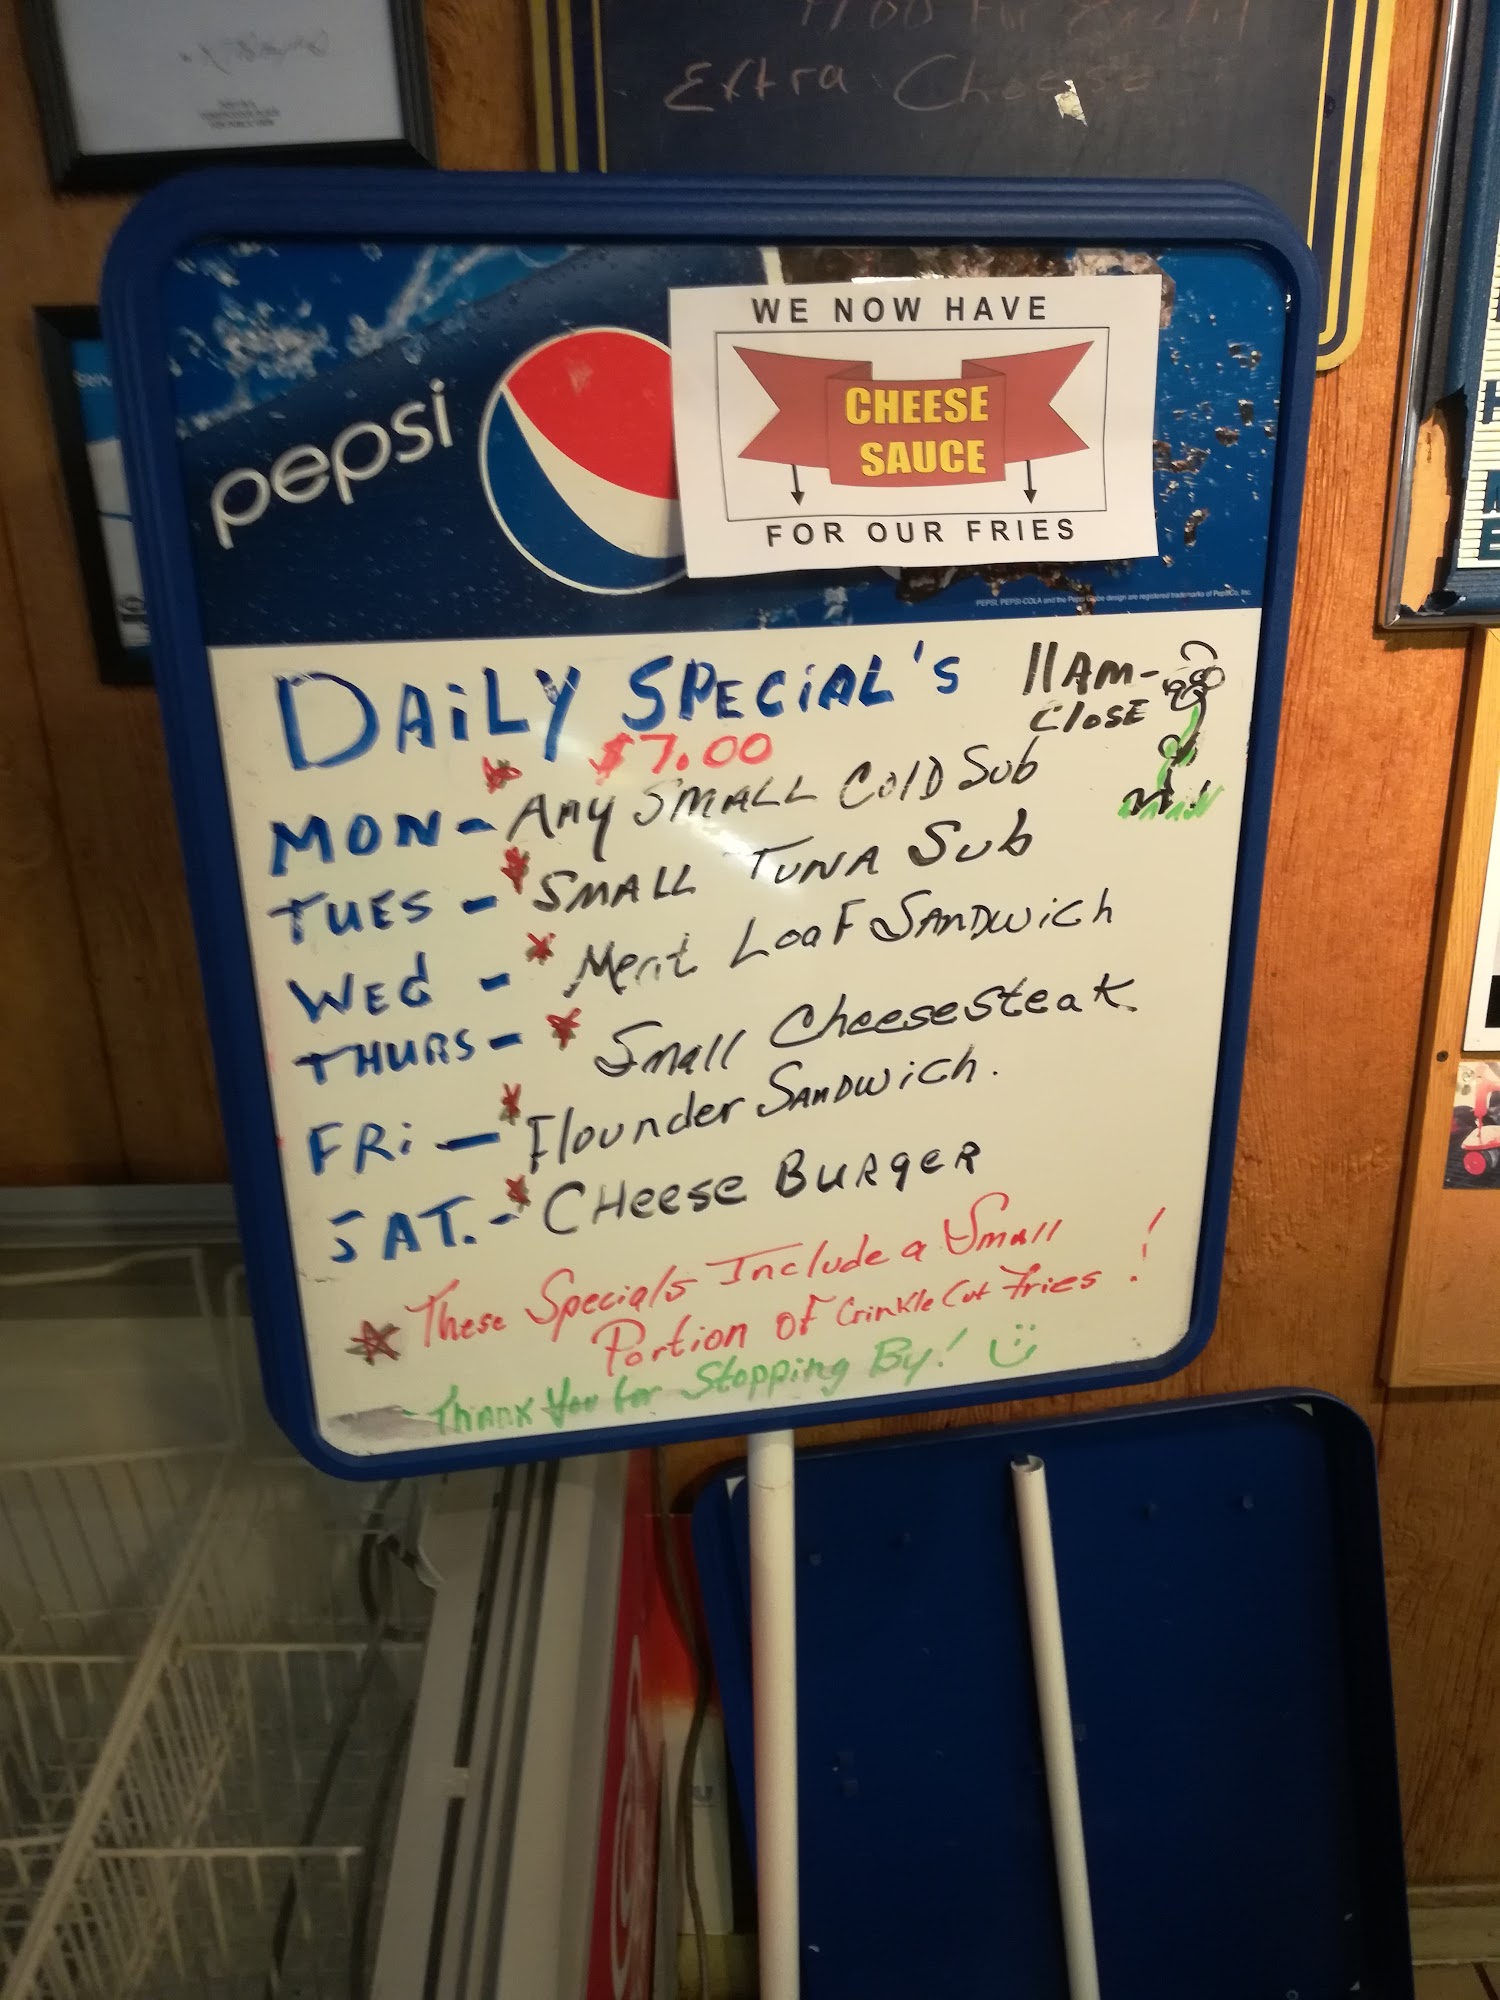 Extra Cheese
pepsi
WE NOW HAVE
CHEESE
SAUCE
FOR OUR FRIES
PEPSI, PEPSI-COLA and the Pepsi Globe design are registered trademarks of PepsiCo, Inc.
DAiLY SPECiAL'S
11AM-
CLOSE
$7.00
MON - Any SMALL COLD Sub
TUES - SMALL TUNA Sub
WEd - Meat LoaF SANDWich
THURS - Small Cheesesteak.
FRi - Flounder SANDWich.
SAT. - CHeese BURgER
These Specials Include a Small
Portion OF Crinkle Cut Fries !
Thank You for Stopping By!